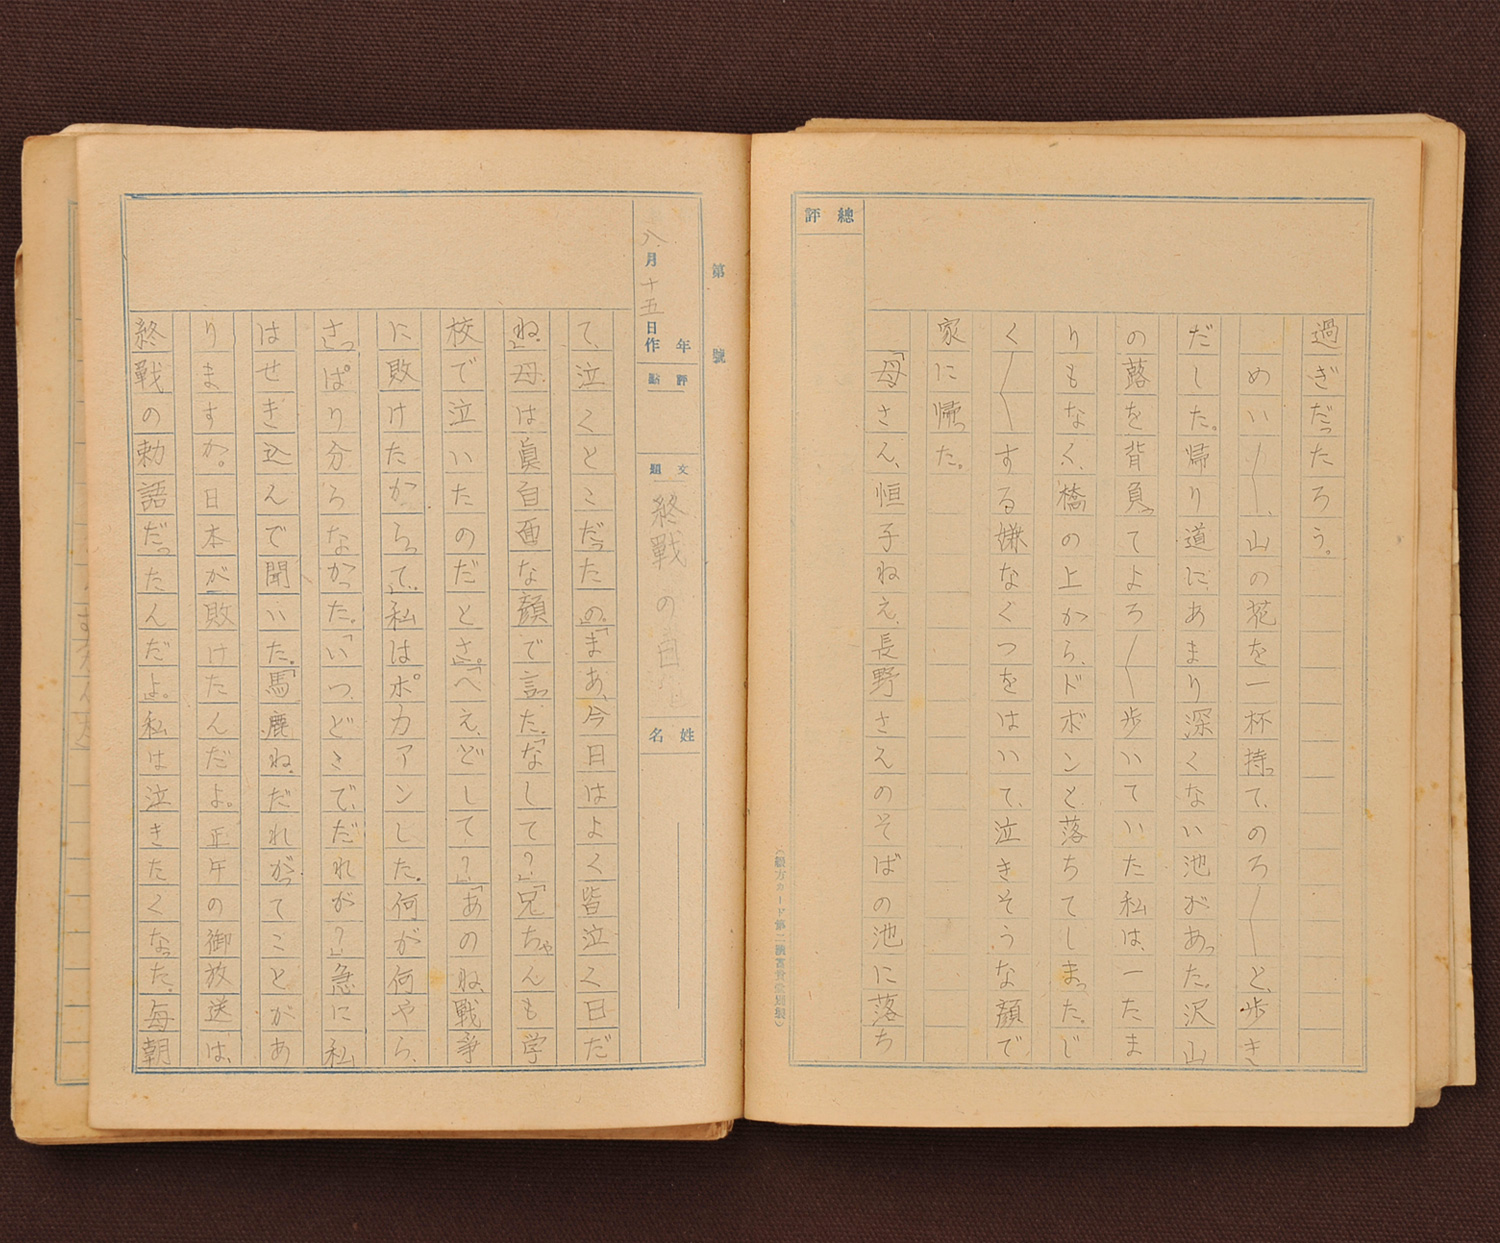 總評
過ぎだったろう。
めい〳〵、山の花を一杯持って、のろ〳〵と、歩き
だした。帰り道に、あまり深くない池があった。沢山
の蕗を背負ってよろ〳〵歩いていた私は、一たま
りもなく、橋の上から、ドボンと落ちてしまった。じ
く〳〵する嫌なくつをはいて、泣きそうな顔で
家に帰った。
「母さん、恒子ねえ、長野さえのそばの池に落ち
第 號
八月十五日作 年
評點
文題 終戰の日
姓名
て、泣くとこだったの。」「まあ、今日はよく皆泣く日だ
ね。」母は眞自面な顔で言った。「なして?」「兄ちゃんも学
校で泣いたのだとさ。」「へえ、どして?」「あのね、戰爭
に敗けたからって。」私はポカァンした。何が何やら、
さっぱり分らなかった。「いつ、どこで、だれが?」急に私
はせき込んで聞いた。「馬鹿ね。だれがってことがあ
りますか。日本が敗けたんだよ。正午の御放送は、
終戰の勅語だったんだよ。」私は泣きたくなった。毎朝